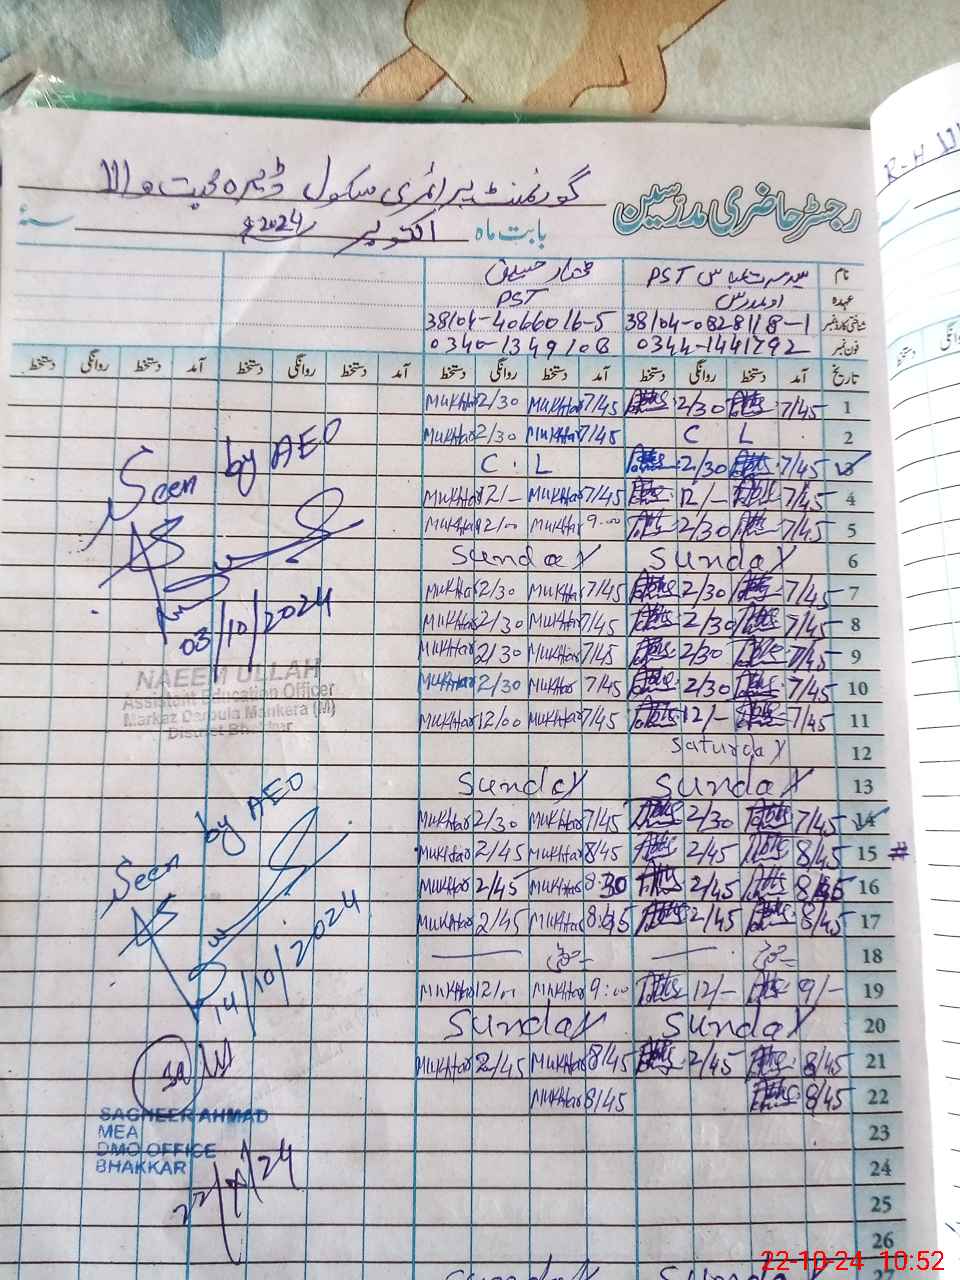 رجسٹر حاضری مدرسین گورنمنٹ پرائمری سکول ڈیرہ محبت والا
بابت ماہ اکتوبر 2024ء سنہ
نام PST عباس مختار حسین
عہدہ PST
شناختی کارڈ نمبر 38104-0828118-1 38104-4066016-5
فون نمبر 0344-1441792 0340-1349108
تاریخ آمد دستخط روانگی دستخط آمد دستخط روانگی دستخط آمد دستخط روانگی دستخط آمد دستخط روانگی دستخط
MUKHtar 2/30 MUKHtar 7/45 2/30 7/45 1
MUKHtar 2/30 MUKHtar 7/45 C L 2
C . L 2/30 7/45 3
MUKHtar 12/- MUKHtar 7/45 12/- 7/45 4
MUKHtar 12/00 MUKHtar 9:00 2/30 7/45 5
Sunday Sunday 6
MUKHtar 2/30 MUKHtar 7/45 2/30 7/45 7
MUKHtar 2/30 MUKHtar 7/45 2/30 7/45 8
MUKHtar 2/30 MUKHtar 7/45 2/30 7/45 9
MUKHtar 2/30 MUKHtar 7/45 2/30 7/45 10
MUKHtar 12/00 MUKHtar 7/45 12/- 7/45 11
Saturday 12
Sunday Sunday 13
MUKHtar 2/30 MUKHtar 7/45 2/30 7/45 14
MUKHtar 2/45 MUKHtar 8/45 2/45 8/45 15 #
MUKHtar 2/45 MUKHtar 8:30 2/45 8/45 16
MUKHtar 2/45 MUKHtar 8:45 2/45 8/45 17
18
MUKHtar 12/00 MUKHtar 9:00 12/- 9/- 19
Sunday Sunday 20
MUKHtar 2/45 MUKHtar 8/45 2/45 8/45 21
MUKHtar 8/45 8/45 22
23
24
25
26
27
Sunday Sunday
Seen by AEO
03/10/2024
NAEEM ULLAH
Assistant Education Officer
Markaz Darbula Mankera (M)
District Bhakkar
Seen by AEO
14/10/2024
SAGHEER AHMAD
MEA
DMO OFFICE
BHAKKAR
22/10/24
22-10-24 10:52